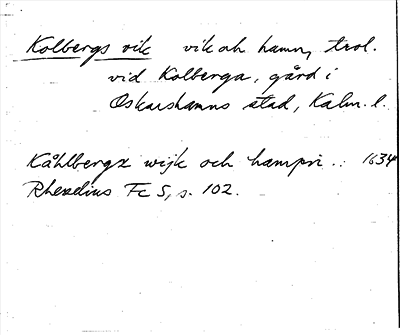 Kolbergs vik vik och hamn, trol.
vid Kolberga, gård i
Oskarshamns stad, Kalm. l.
Kåhlbergz wijk och hampn .: 1634
Rhezelius Fc 5, s. 102.